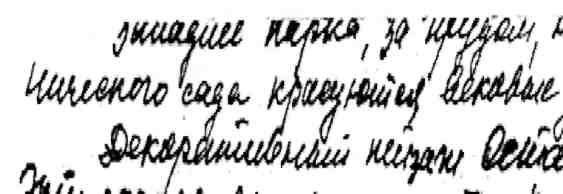 западнее парка, за прудом,
нического сада красуются вековые
Декоративный пейзаж Оста